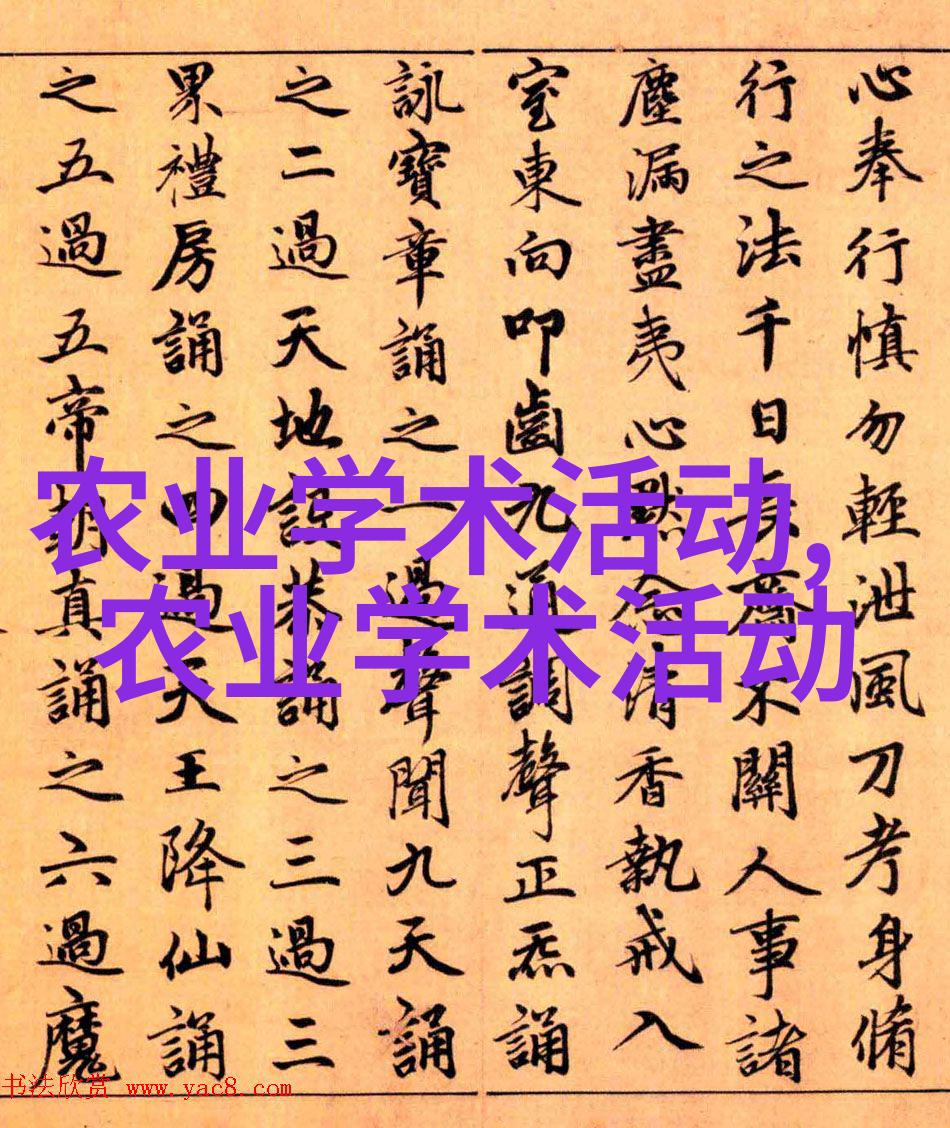 心奉行慎勿輕泄風刀考身脩
行之法千日長齋不關人事諸
塵漏盡夷心默念清香執戒入
室東向叩齒九通調聲正炁誦
詠寶章誦之一過聲聞九天誦
之二過天地設恭誦之三過三
界禮房誦之四過天王降仙誦
之五過五帝朝真誦之六過魔
农业学术活动,
农业学术活动
书法欣赏 www.yac8.com